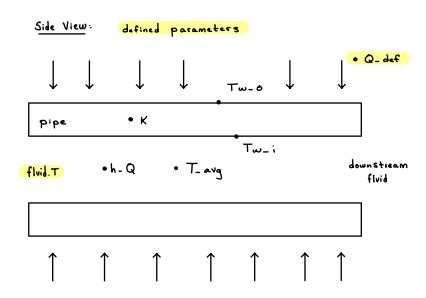 Side View: defined parameters
• Q_def
Tw_o
pipe • K
Tw_i
fluid.T • h_Q • T_avg
downstream
fluid